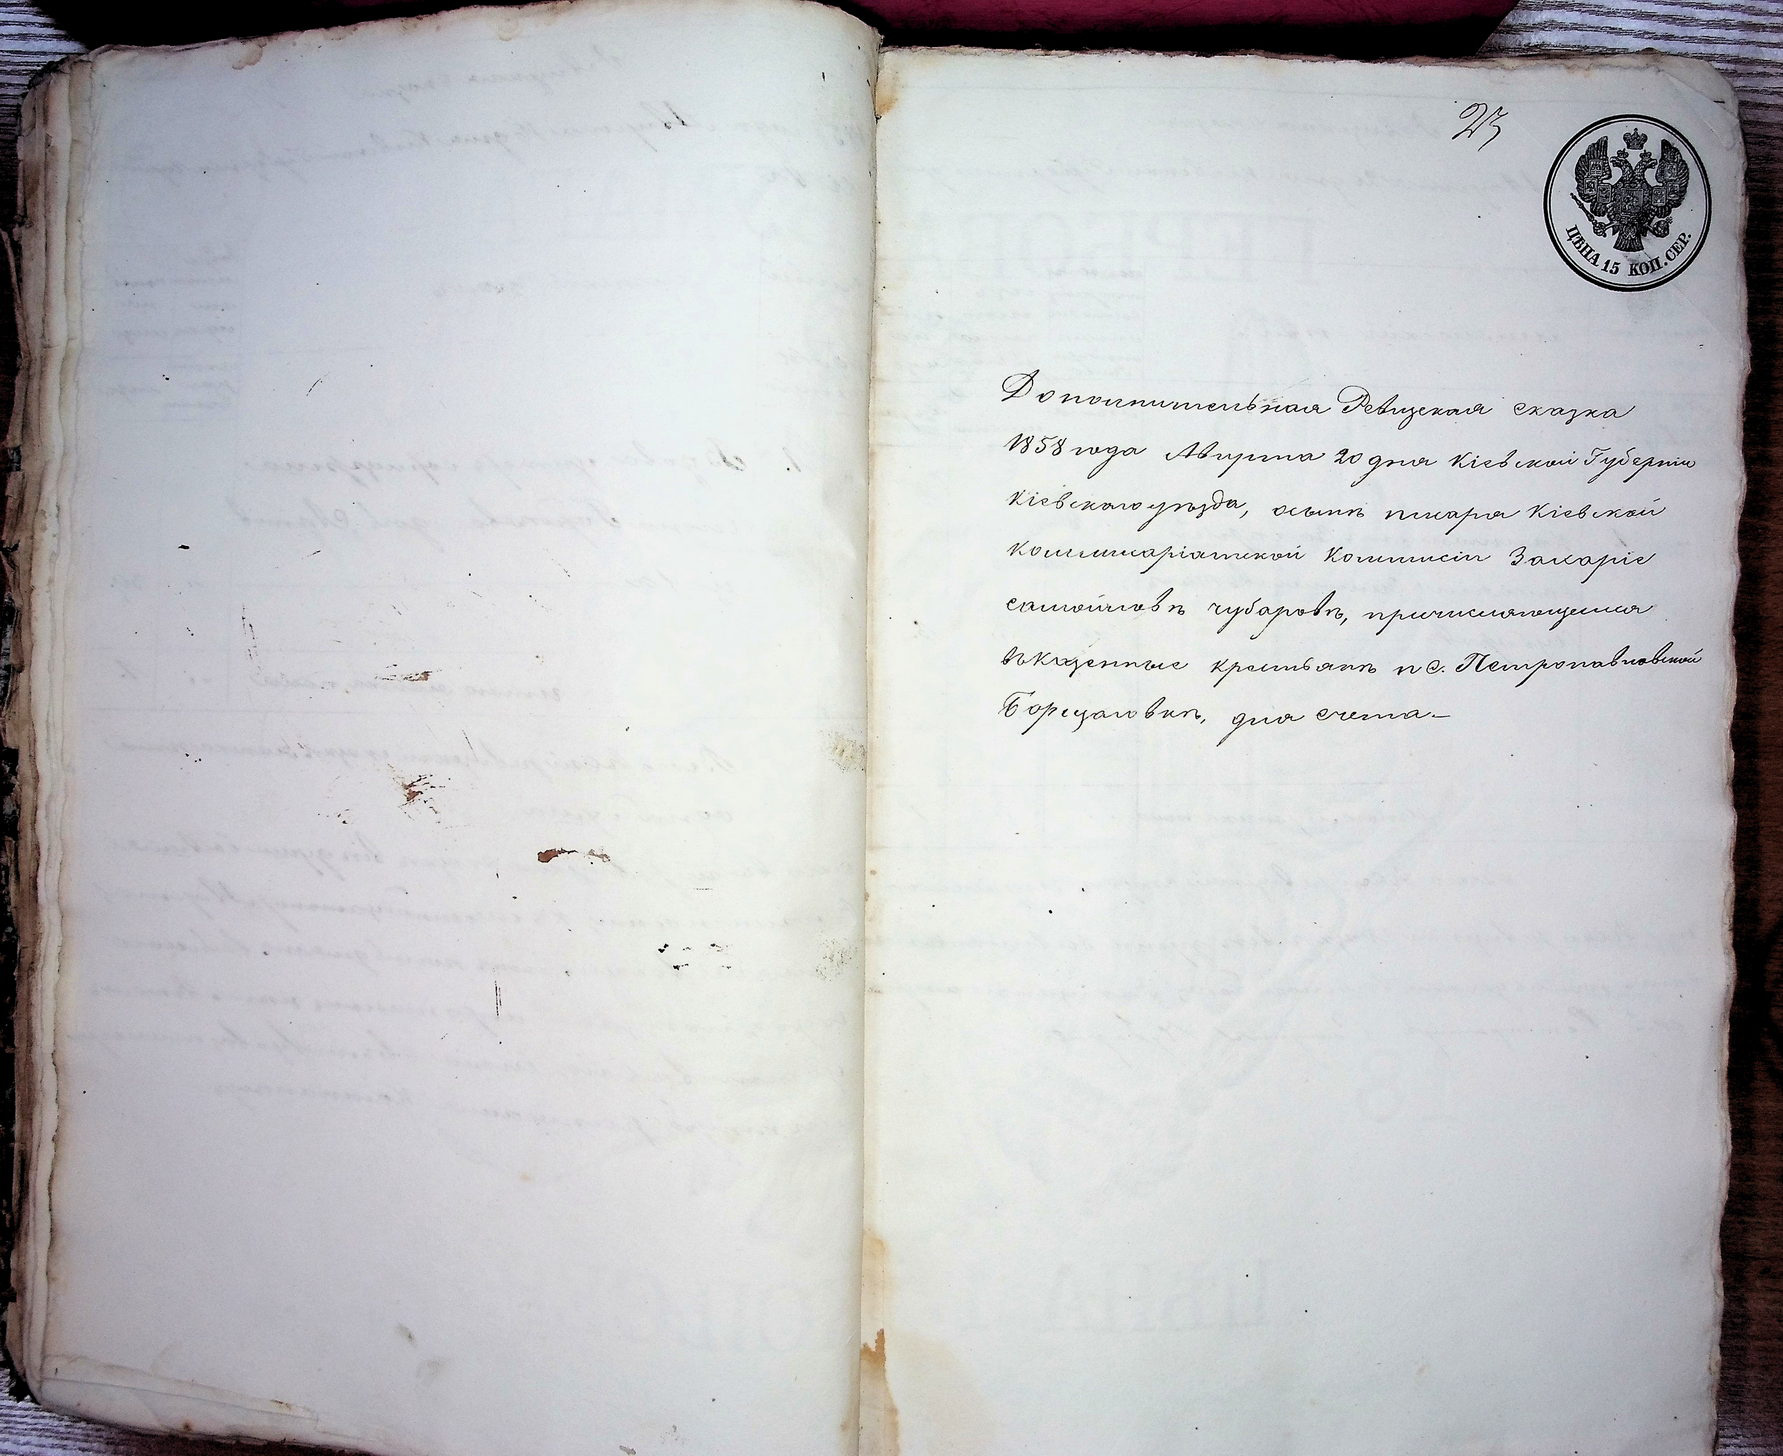 23
ЦѢНА 15 КОП. СЕР.
Дополнительная Ревизская сказка
1858 года Августа 20 дня Кіевской Губерніи
Кіевскаго уѣзда, осынѣ писаря Кіевской
Коммисаріатской Коммисіи Захаріе
самойловѣ чубаровѣ, причисляющемся
въ Казенные крестьянѣ п с. Петропавловской
Борщаговкѣ, для счета –